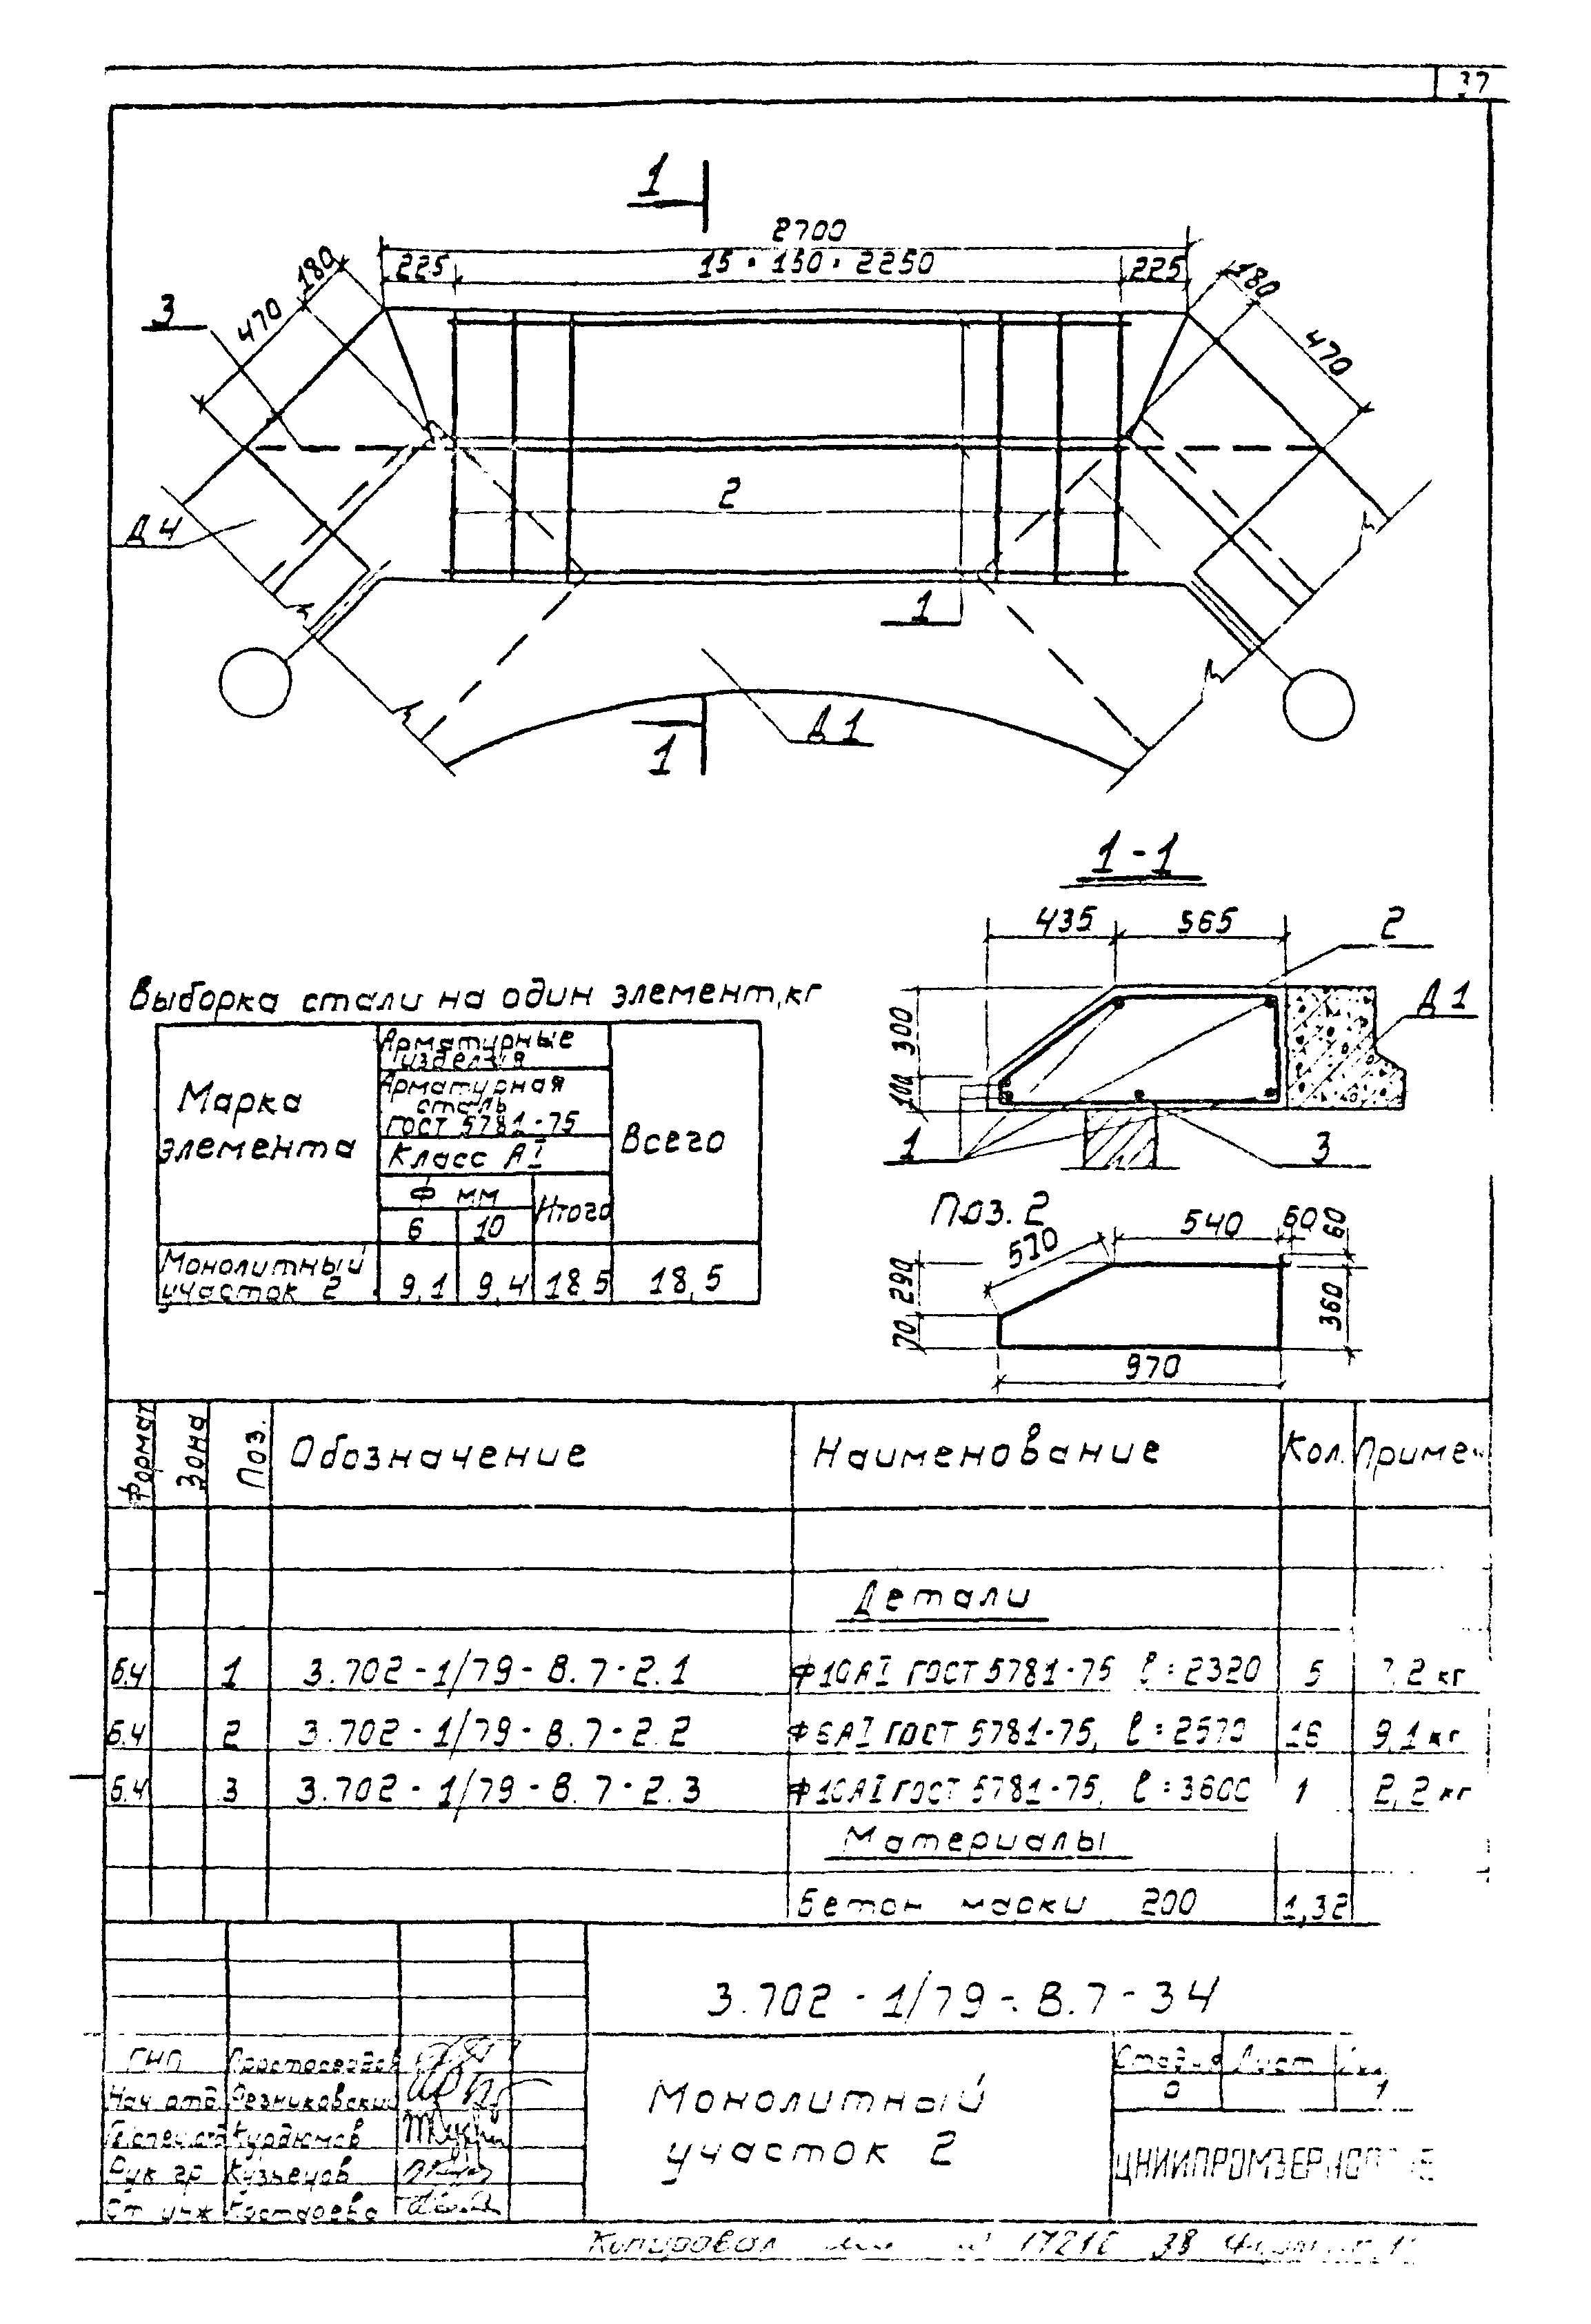 37
1
2700
225
15 × 150 = 2250
225
180
470
180
470
3
2
Д4
1
Д1
1
1-1
435
565
2
Д1
300
100
1
3
Выборка стали на один элемент, кг
Марка элемента
Арматурные изделия
Арматурная сталь
ГОСТ 5781-75
Класс АI
Ф мм
6
10
Итого
Всего
Монолитный участок 2
9,1
9,4
18,5
18,5
Поз. 2
570
540
60
60
290
70
360
970
Формат
Зона
Поз.
Обозначение
Наименование
Кол.
Примеч
Детали
Б.Ч 1 3.702-1/79-В.7-2.1 Ф10АI ГОСТ 5781-75 l=2320 5 7,2 кг
Б.Ч 2 3.702-1/79-В.7-2.2 Ф6АI ГОСТ 5781-75, l=2570 16 9,1 кг
Б.Ч 3 3.702-1/79-В.7-2.3 Ф10АI ГОСТ 5781-75, l=3600 1 2,2 кг
Материалы
Бетон марки 200 1,32
3.702-1/79-В.7-34
ГИП
Нач. отд. Резниковский
Гл.спец.отд Курдюмов
Рук. гр. Кузнецов
Ст. инж. Костарева
Монолитный участок 2
Стадия
Лист
О
1
Копировал
38